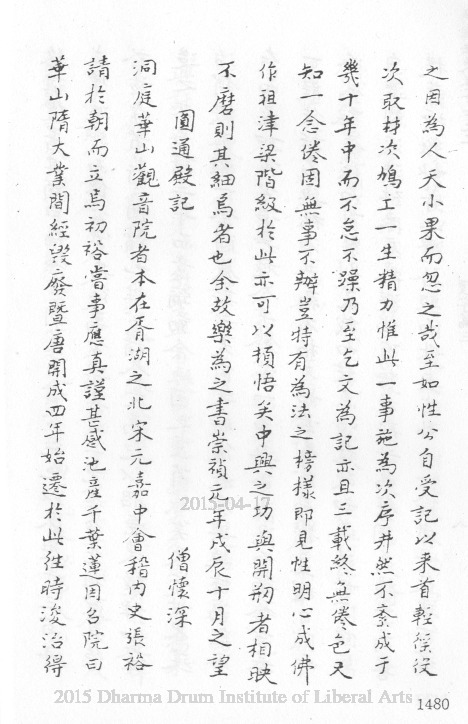 之因為人天小果而忽之哉至如性公自受記以来首輕徭役
次取材次鳩工一生精力惟此一事施為次序井然不紊成于
幾十年中而不怠不躁乃至乞文為記亦且三載終無倦色天
知一念倦因無事不辦豈特有為法之榜樣即見性明心成佛
作祖津梁階級於此亦可以頓悟矣中興之功與開刱者相映
不磨則其細焉者也余故樂為之書崇禎元年戊辰十月之望
圓通殿記
僧懷深
洞庭華山觀音院者本在胥湖之北宋元嘉中會稽内史張裕
請於朝而立焉初裕嘗事應真謹甚感池産千葉蓮因名院曰
華山隋大業間經毀廢暨唐開成四年始遷於此徃時浚治得
2015-04-17
2015 Dharma Drum Institute of Liberal Arts
1480